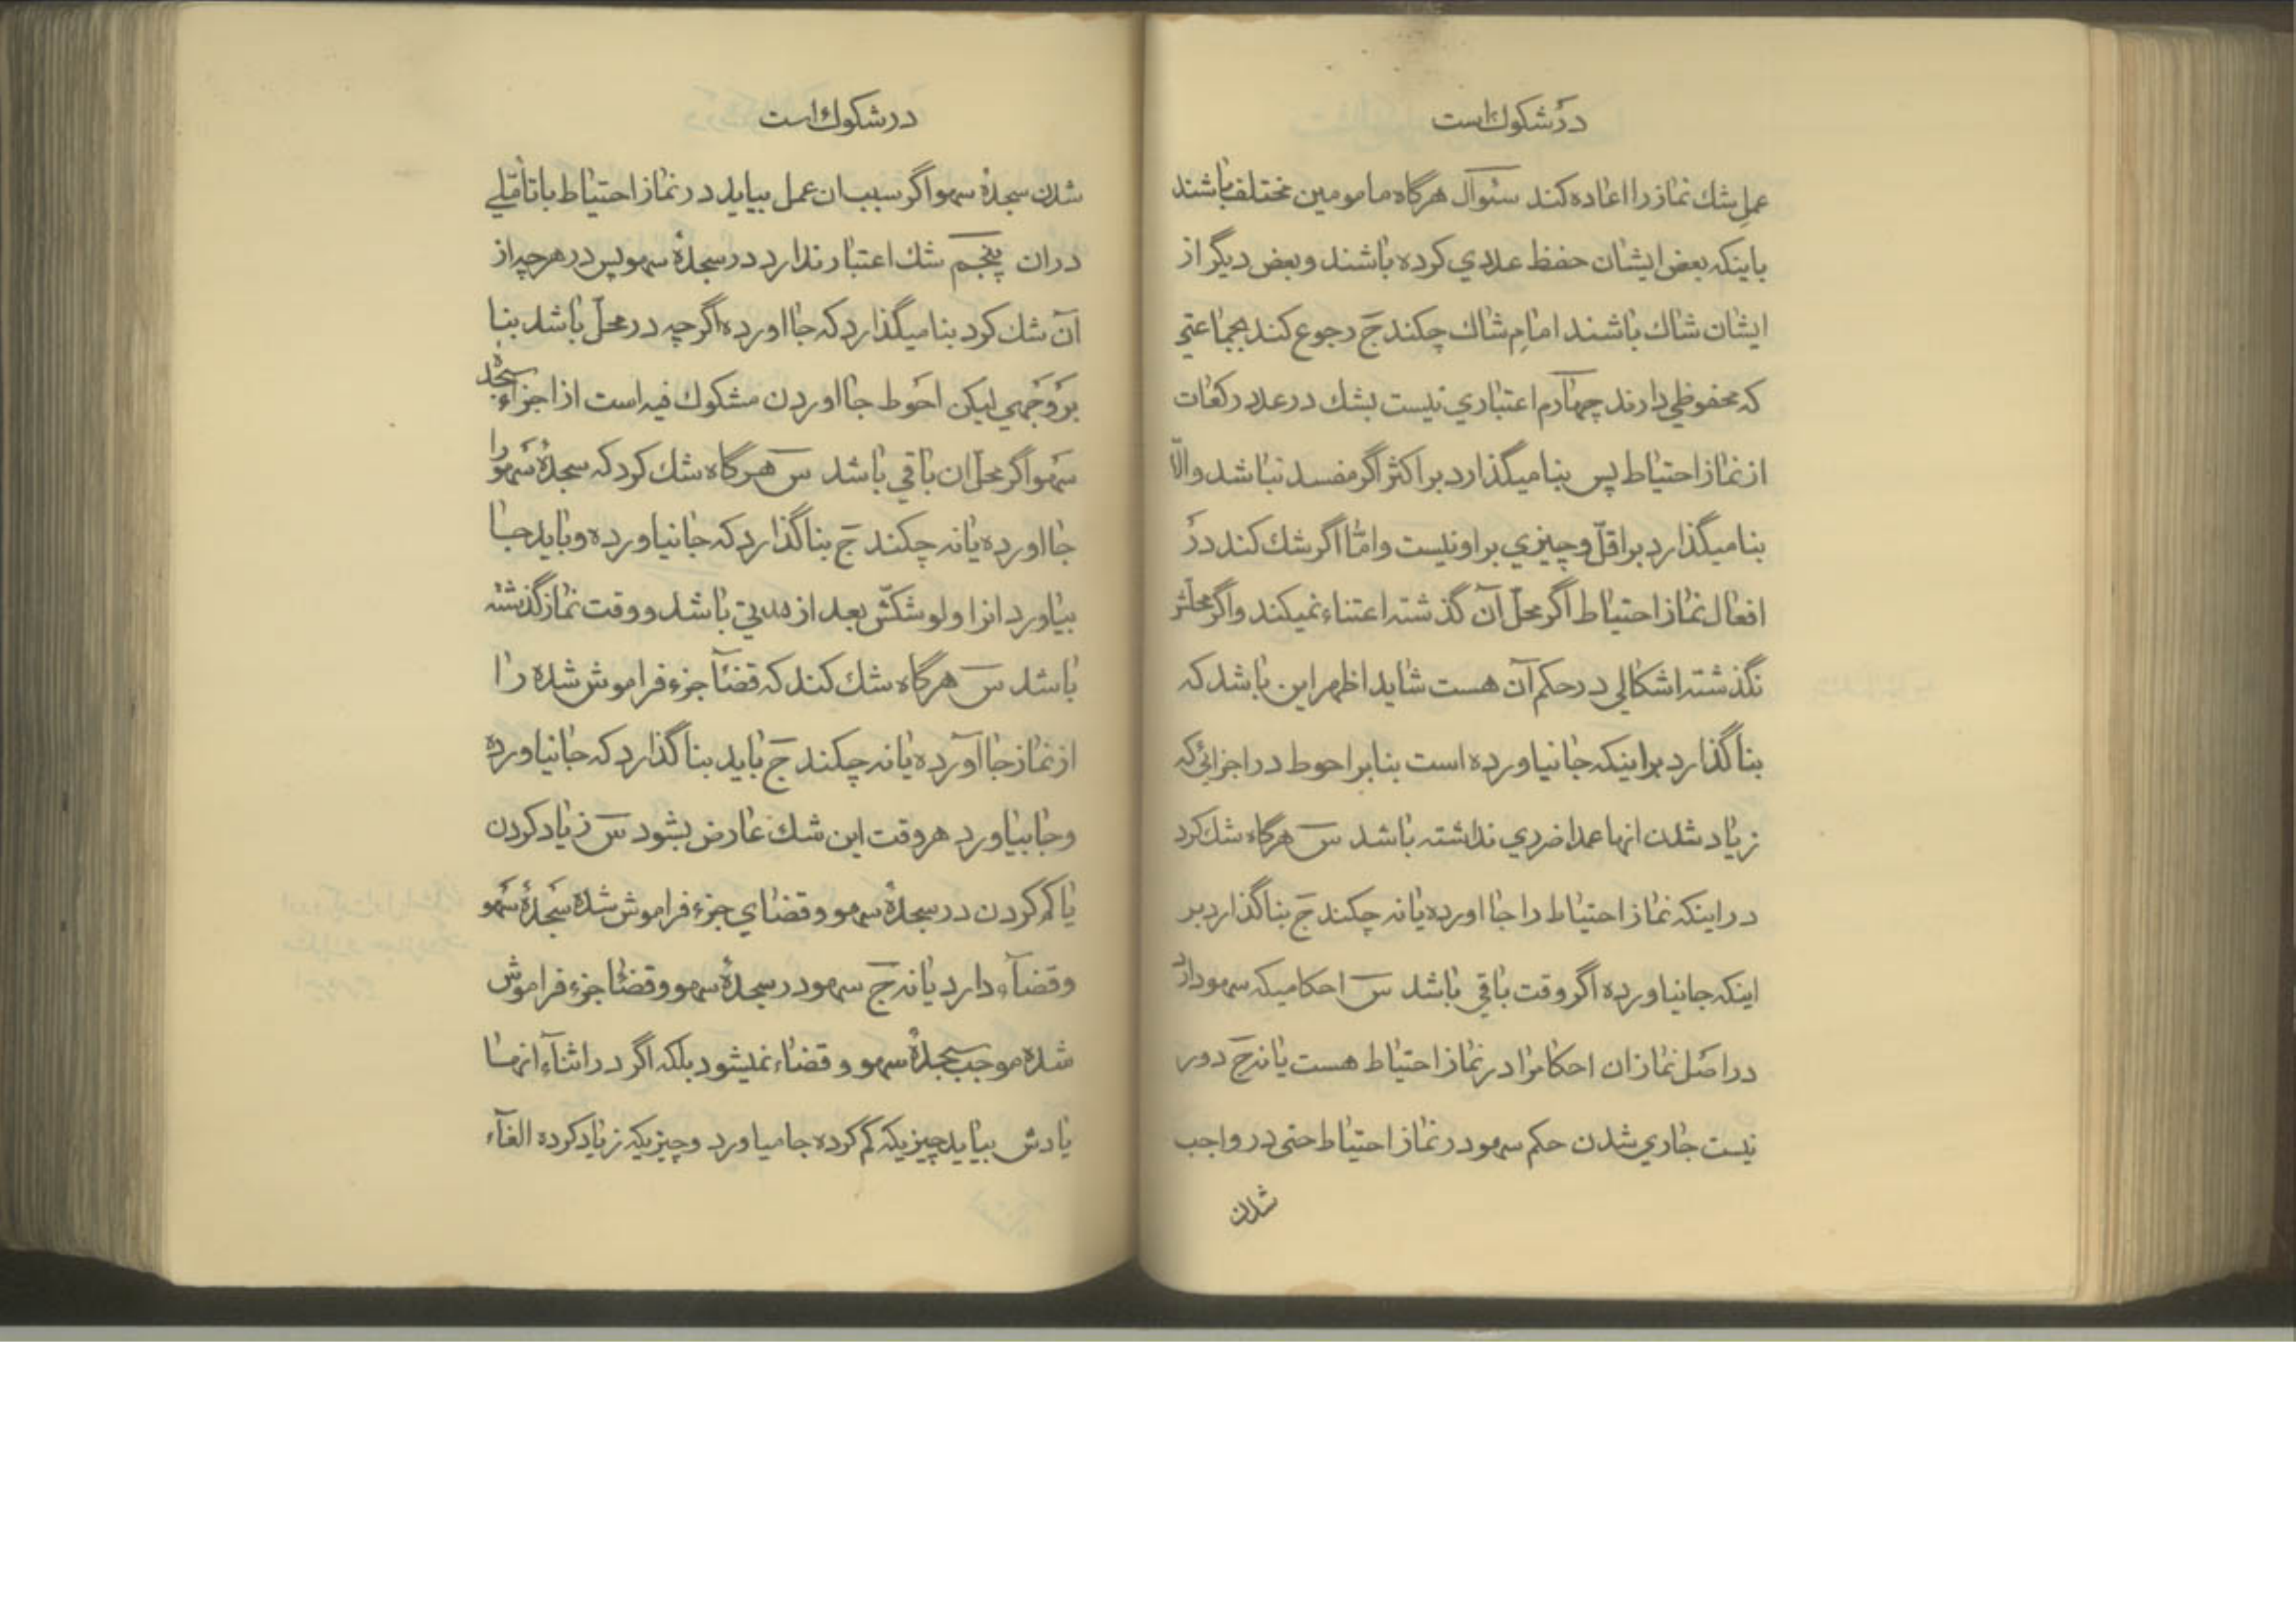 در شكوك است
عمل شك نماز را اعاده كند سئوال هرگاه مامومين مختلف باشند
باينكه بعض ايشان حفظ عددي كرده باشند و بعض ديگر از
ايشان شاك باشند امام شاك چكند ج رجوع كند بجماعتي
كه محفوظي دارند چهارم اعتباري نيست بشك در عدد ركعات
از نماز احتياط پس بنا ميگذارد بر اكثر اگر مفسد نباشد و الّا
بنا ميگذارد بر اقلّ و چيزي بر او نيست و امّا اگر شك كند در
افعال نماز احتياط اگر محلّ آن گذشته اعتناء نميكند و اگر محلّش
نگذشته اشكالي در حكم آن هست شايد اظهر اين باشد كه
بنا گذارد بر اينكه جا نياورده است بنا بر احوط در اجزائي كه
زياد شدن انها عمدا ضرري نداشته باشد س هرگاه شك كرد
در اينكه نماز احتياط را جا اورده يا نه چكند ج بنا گذارد بر
اينكه جا نياورده اگر وقت باقي باشد س احكاميكه سهو دارد
در اصل نماز ان احكام را در نماز احتياط هست يا نه ج دور
نيست جاري شدن حكم سهو در نماز احتياط حتى در واجب
شدن
در شكوك است
شدن سجدهٔ سهو اگر سبب ان عمل بيايد در نماز احتياط با تأمّلي
در ان پنجم شك اعتبار ندارد در سجدهٔ سهو پس در هر چه از
آن شك كرد بنا ميگذارد كه جا اورده اگر چه در محلّ باشد بنا
بر وجهي ليكن احوط جا اوردن مشكوك فيه است از اجزاء سجدهٔ
سهو اگر محلّ ان باقي باشد س هرگاه شك كرد كه سجدهٔ سهو را
جا اورده يا نه چكند ج بنا گذارد كه جا نياورده و بايد جا
بياورد انرا و لو شكّش بعد از مدتي باشد و وقت نماز گذشته
باشد س هرگاه شك كند كه قضآ جزء فراموش شده را
از نماز جا آورده يا نه چكند ج بايد بنا گذارد كه جا نياورده
و جا بياورد هر وقت اين شك عارض بشود س زياد كردن
يا كم كردن در سجدهٔ سهو و قضاي جزء فراموش شده سجدهٔ سهو
و قضآء دارد يا نه ج سهو در سجدهٔ سهو و قضا جزء فراموش
شده موجب سجدهٔ سهو و قضاء نميشود بلكه اگر در اثنآء انها
يادش بيايد چيزيكه كم كرده جا مياورد و چيزيكه زياد كرده الغآء